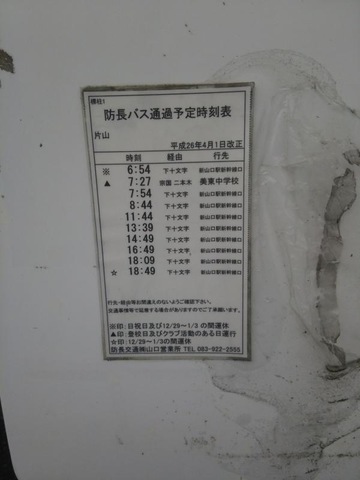 標柱1
防長バス通過予定時刻表
片山
平成26年4月1日改正
時刻 経由 行先
※ 6:54 下十文字 新山口駅新幹線口
▲ 7:27 宗国 二本木 美東中学校
7:54 下十文字 新山口駅新幹線口
8:44 下十文字 新山口駅新幹線口
11:44 下十文字 新山口駅新幹線口
13:39 下十文字 新山口駅新幹線口
14:49 下十文字 新山口駅新幹線口
16:49 下十文字 新山口駅新幹線口
18:09 下十文字 新山口駅新幹線口
☆ 18:49 下十文字 新山口駅新幹線口
行先・経由等お間違えのないようご確認下さい。
交通事情等で延着する場合がありますのでご了承願います。
※印:日祝日及び12/29~1/3の間運休
▲印:登校日及びクラブ活動のある日運行
☆印:12/29~1/3の間運休
防長交通㈱山口営業所 TEL 083-922-2555